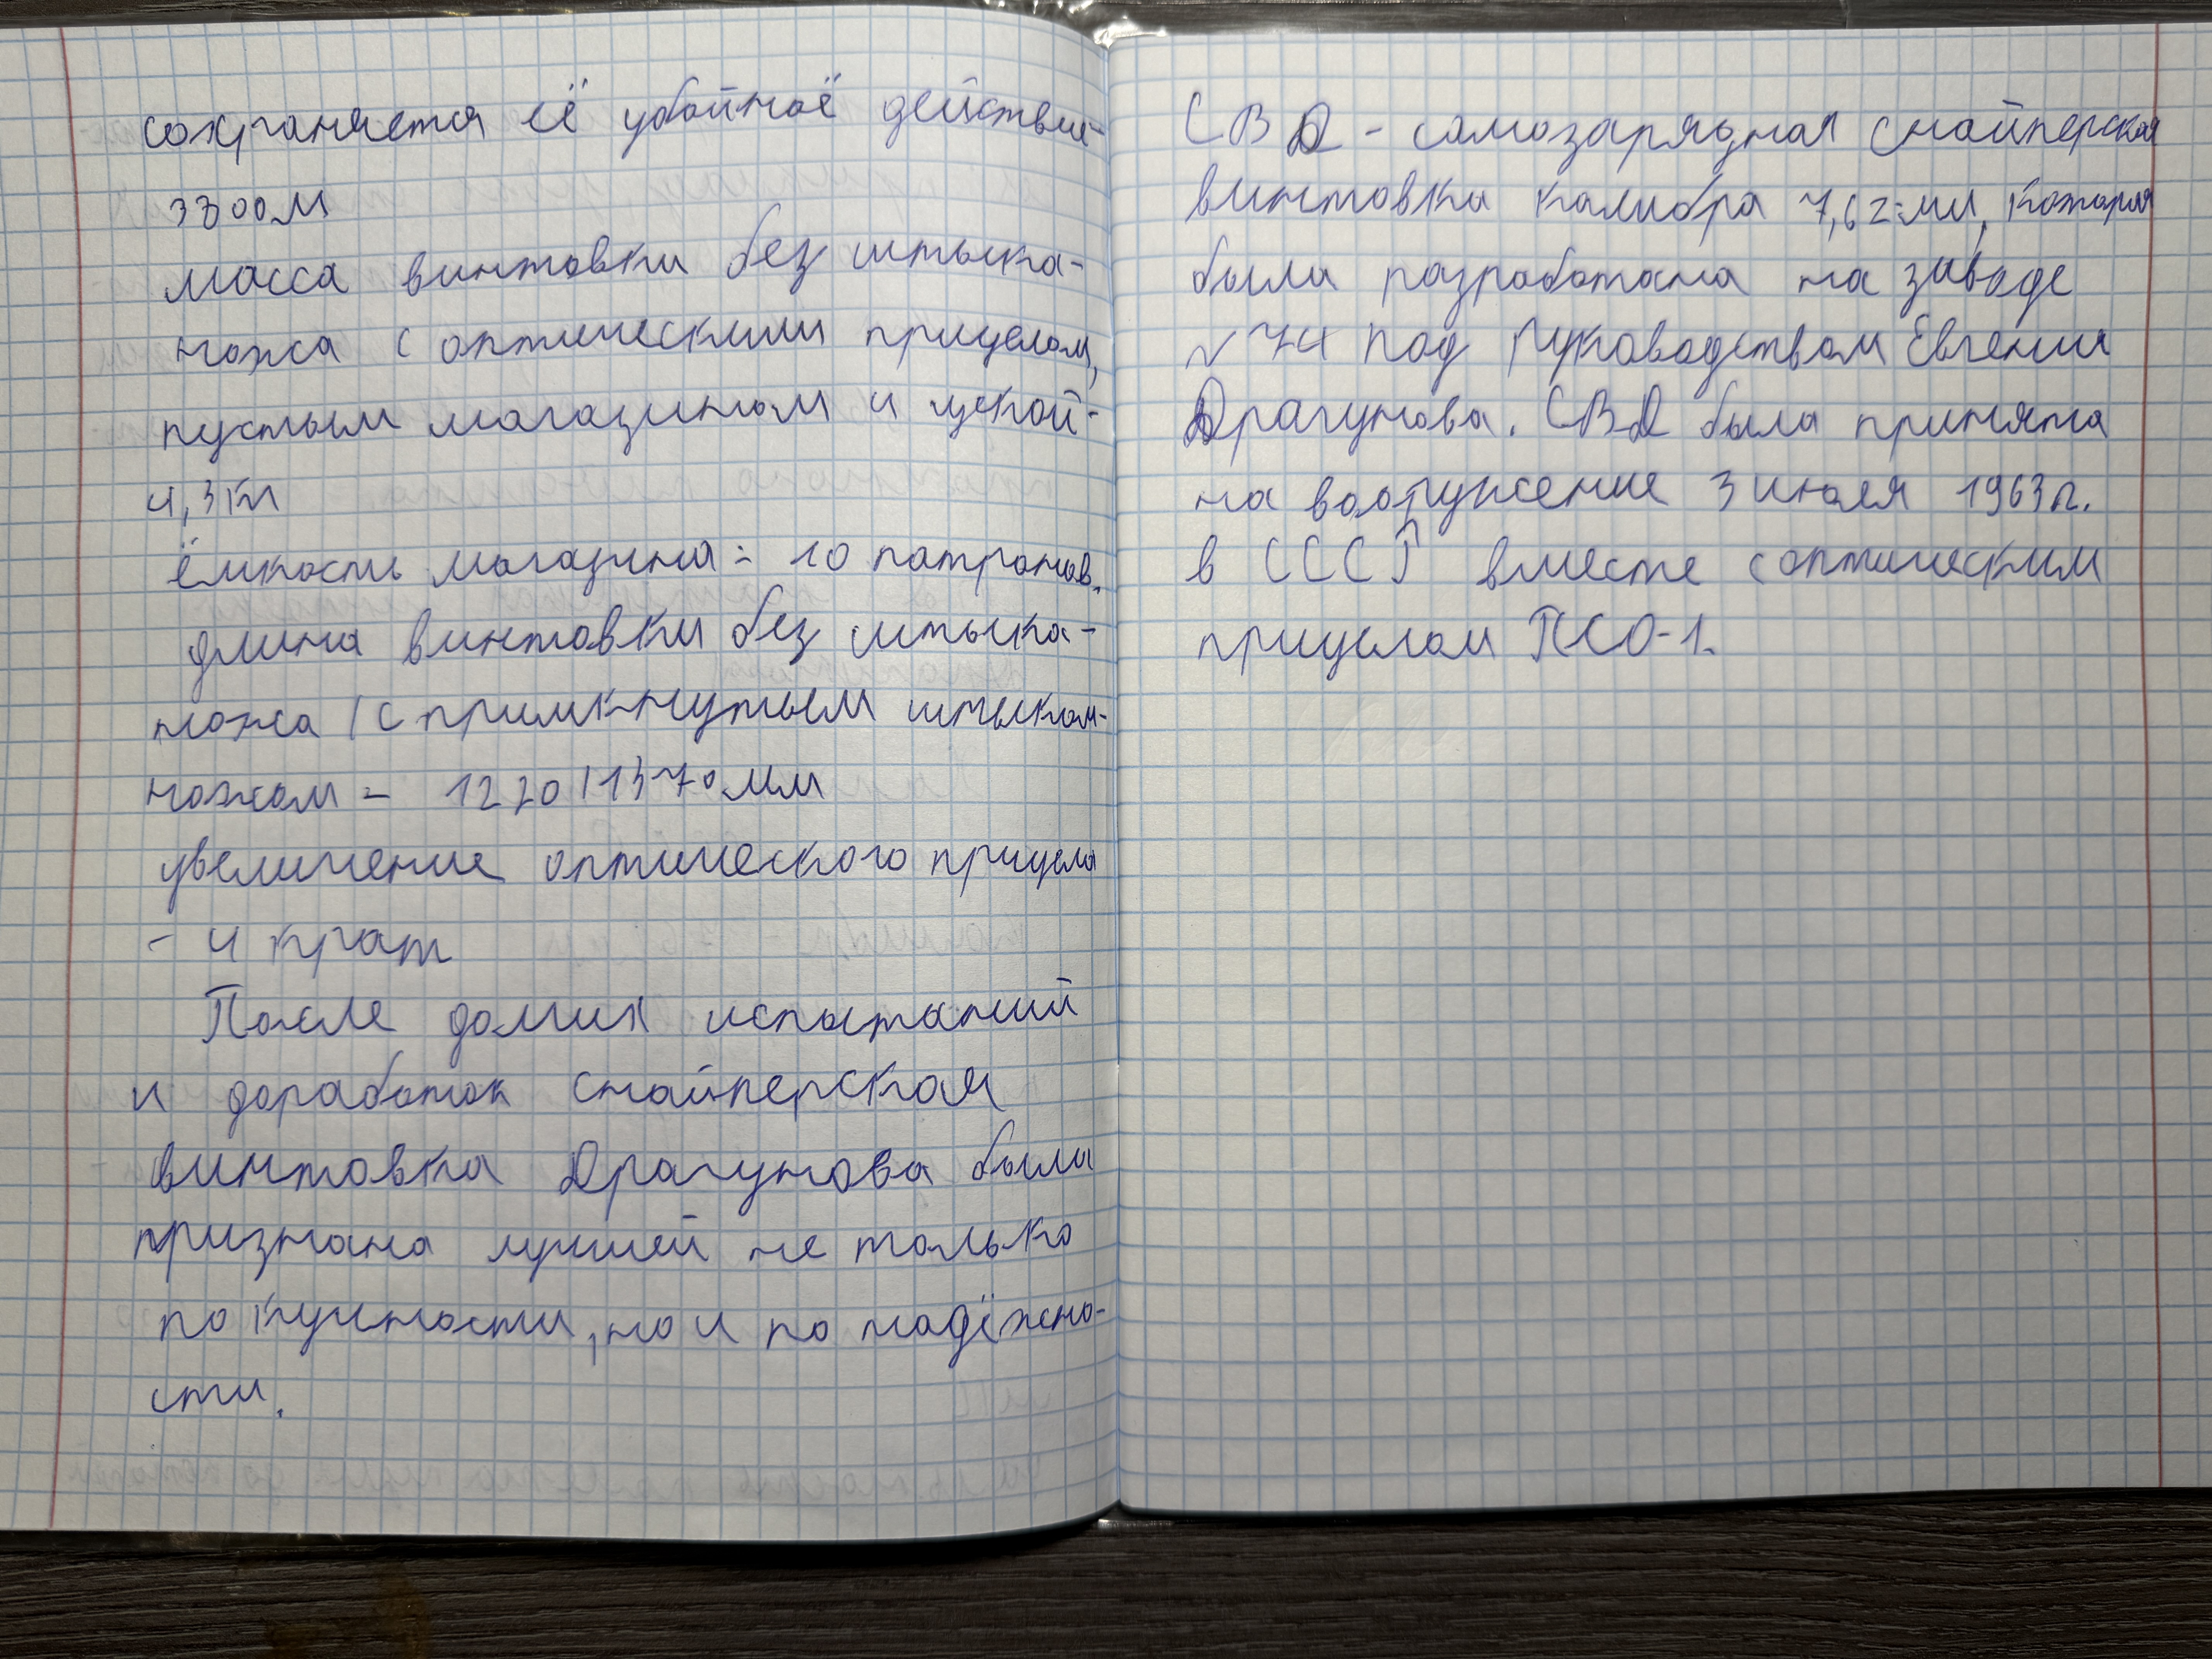 сохраняется её убойноё действия-
3800м
масса винтовки без штыка-
ножа с оптическими прицелом,
пустым магазином и щекой-
4,3кг
ёмкость магазина = 10 патронов.
длина винтовки без штыка-
ножа / с примкнутым штыком-
ножом - 1220/1370мм
увеличение оптического прицела
- 4 крат
После долгих испытаний
и доработок снайперская
винтовка Драгунова была
признана лучшей не только
по кучности, но и по надёжно-
сти.
СВД - самозарядная снайперская
винтовка калибра 7,62-мм, которая
была разработана на заводе
№74 под руководством Евгения
Драгунова. СВД была принята
на вооружение 3 июля 1963г.
в СССР вместе с оптическим
прицелом ПСО-1.